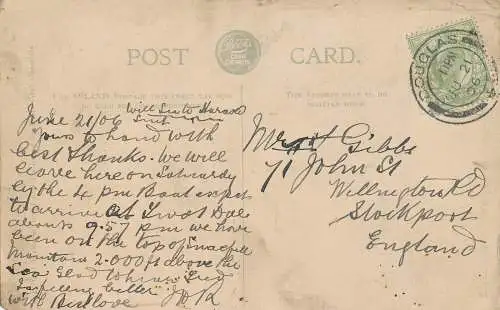 POST CARD.
Boots
CASH
CHEMISTS
DOUGLAS
JU 21
06
June 21/06 Will Write Harold
Yours to hand with
best thanks. We will
leave here on Saturday
by the 4 pm Boat expect
to arrive at
about 9.57 pm we have
been on the top of Snaefell
Mountain 2.000 ft above the
Sea Glad to know
is feeling better
with Best love J
Mr Gibbs
71 John St
Wellington Rd
Stockport
England